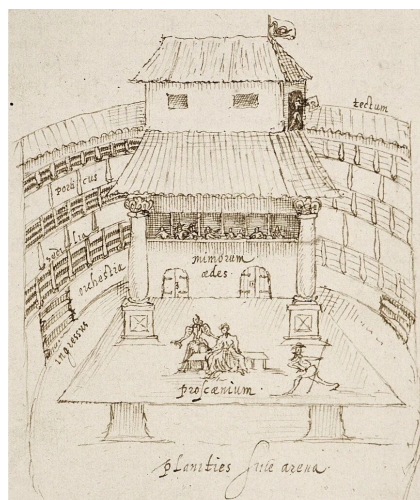 tectum
porticus
sedilia
orchestra
ingressus
mimorum
ædes
proscænium.
planities sive arena.